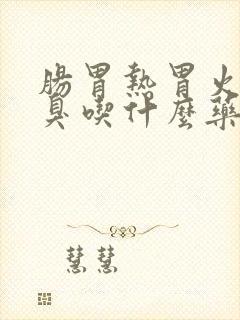 腸胃熱胃火
臭喫什麼藥
慧慧